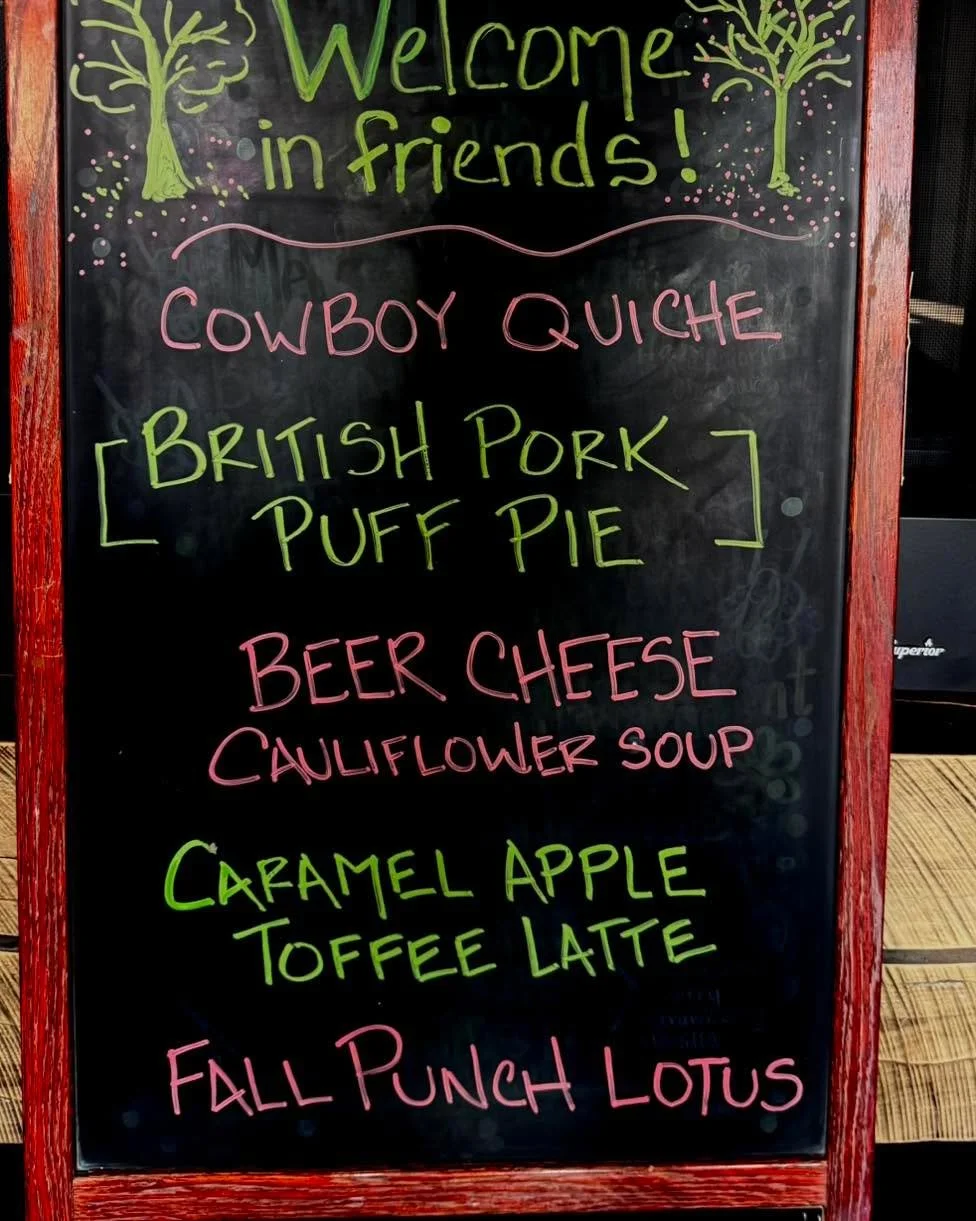 Welcome
in friends!
COWBOY QUICHE
[BRITISH PORK
PUFF PIE]
BEER CHEESE
CAULIFLOWER SOUP
CARAMEL APPLE
TOFFEE LATTE
FALL PUNCH LOTUS
uperior